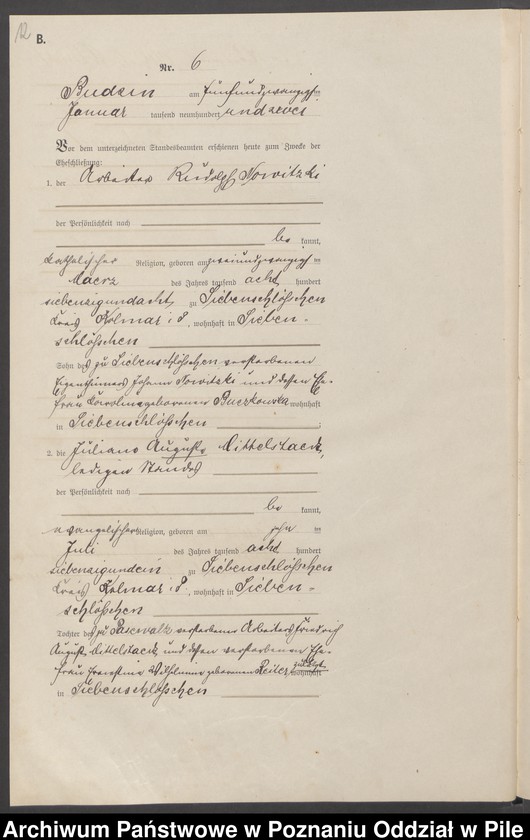 12
B.
Nr. 6
Budsin am fünfundzwanzigsten
Januar tausend neunhundert und
Vor dem unterzeichneten Standesbeamten erschienen heute zum Zwecke der
Eheschließung:
1. der Arbeiter Rudolph Nowitzki
der Persönlichkeit nach
be kannt,
katholischer Religion, geboren am zweiundzwanzigsten
Maerz des Jahres tausend acht hundert
siebenzigundacht, zu Siebenschlößchen
Kreis Kolmar i/P, wohnhaft in Sieben-
schlößchen
Sohn des zu Siebenschlößchen verstorbenen
Eigenthümers Johann Nowitzki und dessen Ehe-
frau geborenen Buczkowska wohnhaft
in Siebenschlößchen
2. die Juliane Auguste Mittelstaedt,
ledigen Standes
der Persönlichkeit nach
be kannt,
evangelischer Religion, geboren am zehn ten
Juli des Jahres tausend acht hundert
siebenzigundein zu Siebenschlößchen
Kreis Kolmar i/P, wohnhaft in Sieben-
schlößchen
Tochter des zu Pasewalk verstorbenen Arbeiters Friedrich
August Mittelstaedt und dessen verstorbenen Ehe-
frau Ernestine Wilhelmine geborenen zuletzt wohnhaft
in Siebenschlößchen
Archiwum Państwowe w Poznaniu Oddział w Pile